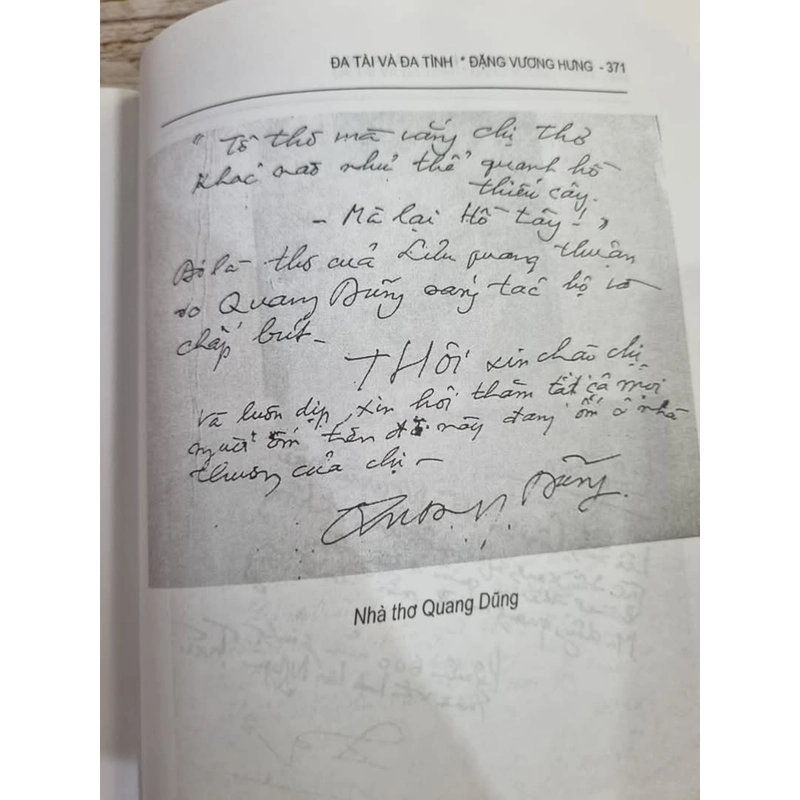 ĐA TÀI VÀ ĐA TÌNH * ĐẶNG VƯƠNG HƯNG - 371
"Tổ thơ mà vắng chị thơ
Khác nào như thể quanh hồ
thiếu cây.
- Mà lại Hồ Tây! "
Đó là thơ của Lưu quang thuận
do Quang Dũng sáng tác hộ và
chấp bút -
THÔI xin chào chị
và luôn dịp, xin hỏi thăm tất cả mọi
người ốm trên đời này đang ốm ở nhà
thương của chị -
Quang Dũng.
Nhà thơ Quang Dũng